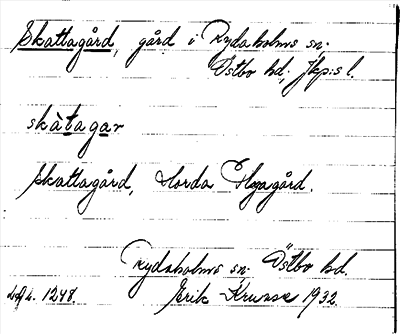 Skattagård, gård i Rydaholms sn.
Östbo hd, Jkp:s l.
skàtagar
Skattagård, Horda Ylyagård.
Rydaholms sn. Östbo hd.
1248. Erik 1932.